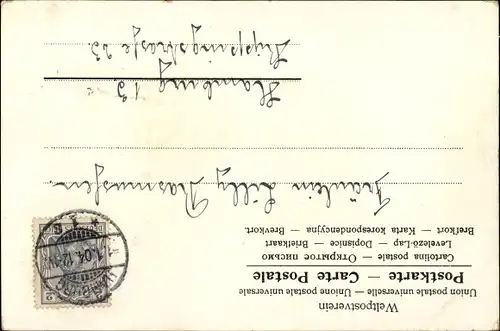 Weltpostverein
Union postale universelle — Unione postale universale
Postkarte — Carte Postale
Cartolina postale — Открытое письмо
Levelező-Lap — Dopisnice — Briefkaart
Brefkort — Karta korespondencyjna — Brevkort.
Fräulein Lilly Rasmussen
Hamburg 13.
Rippingstrasse 23.
1.04.12